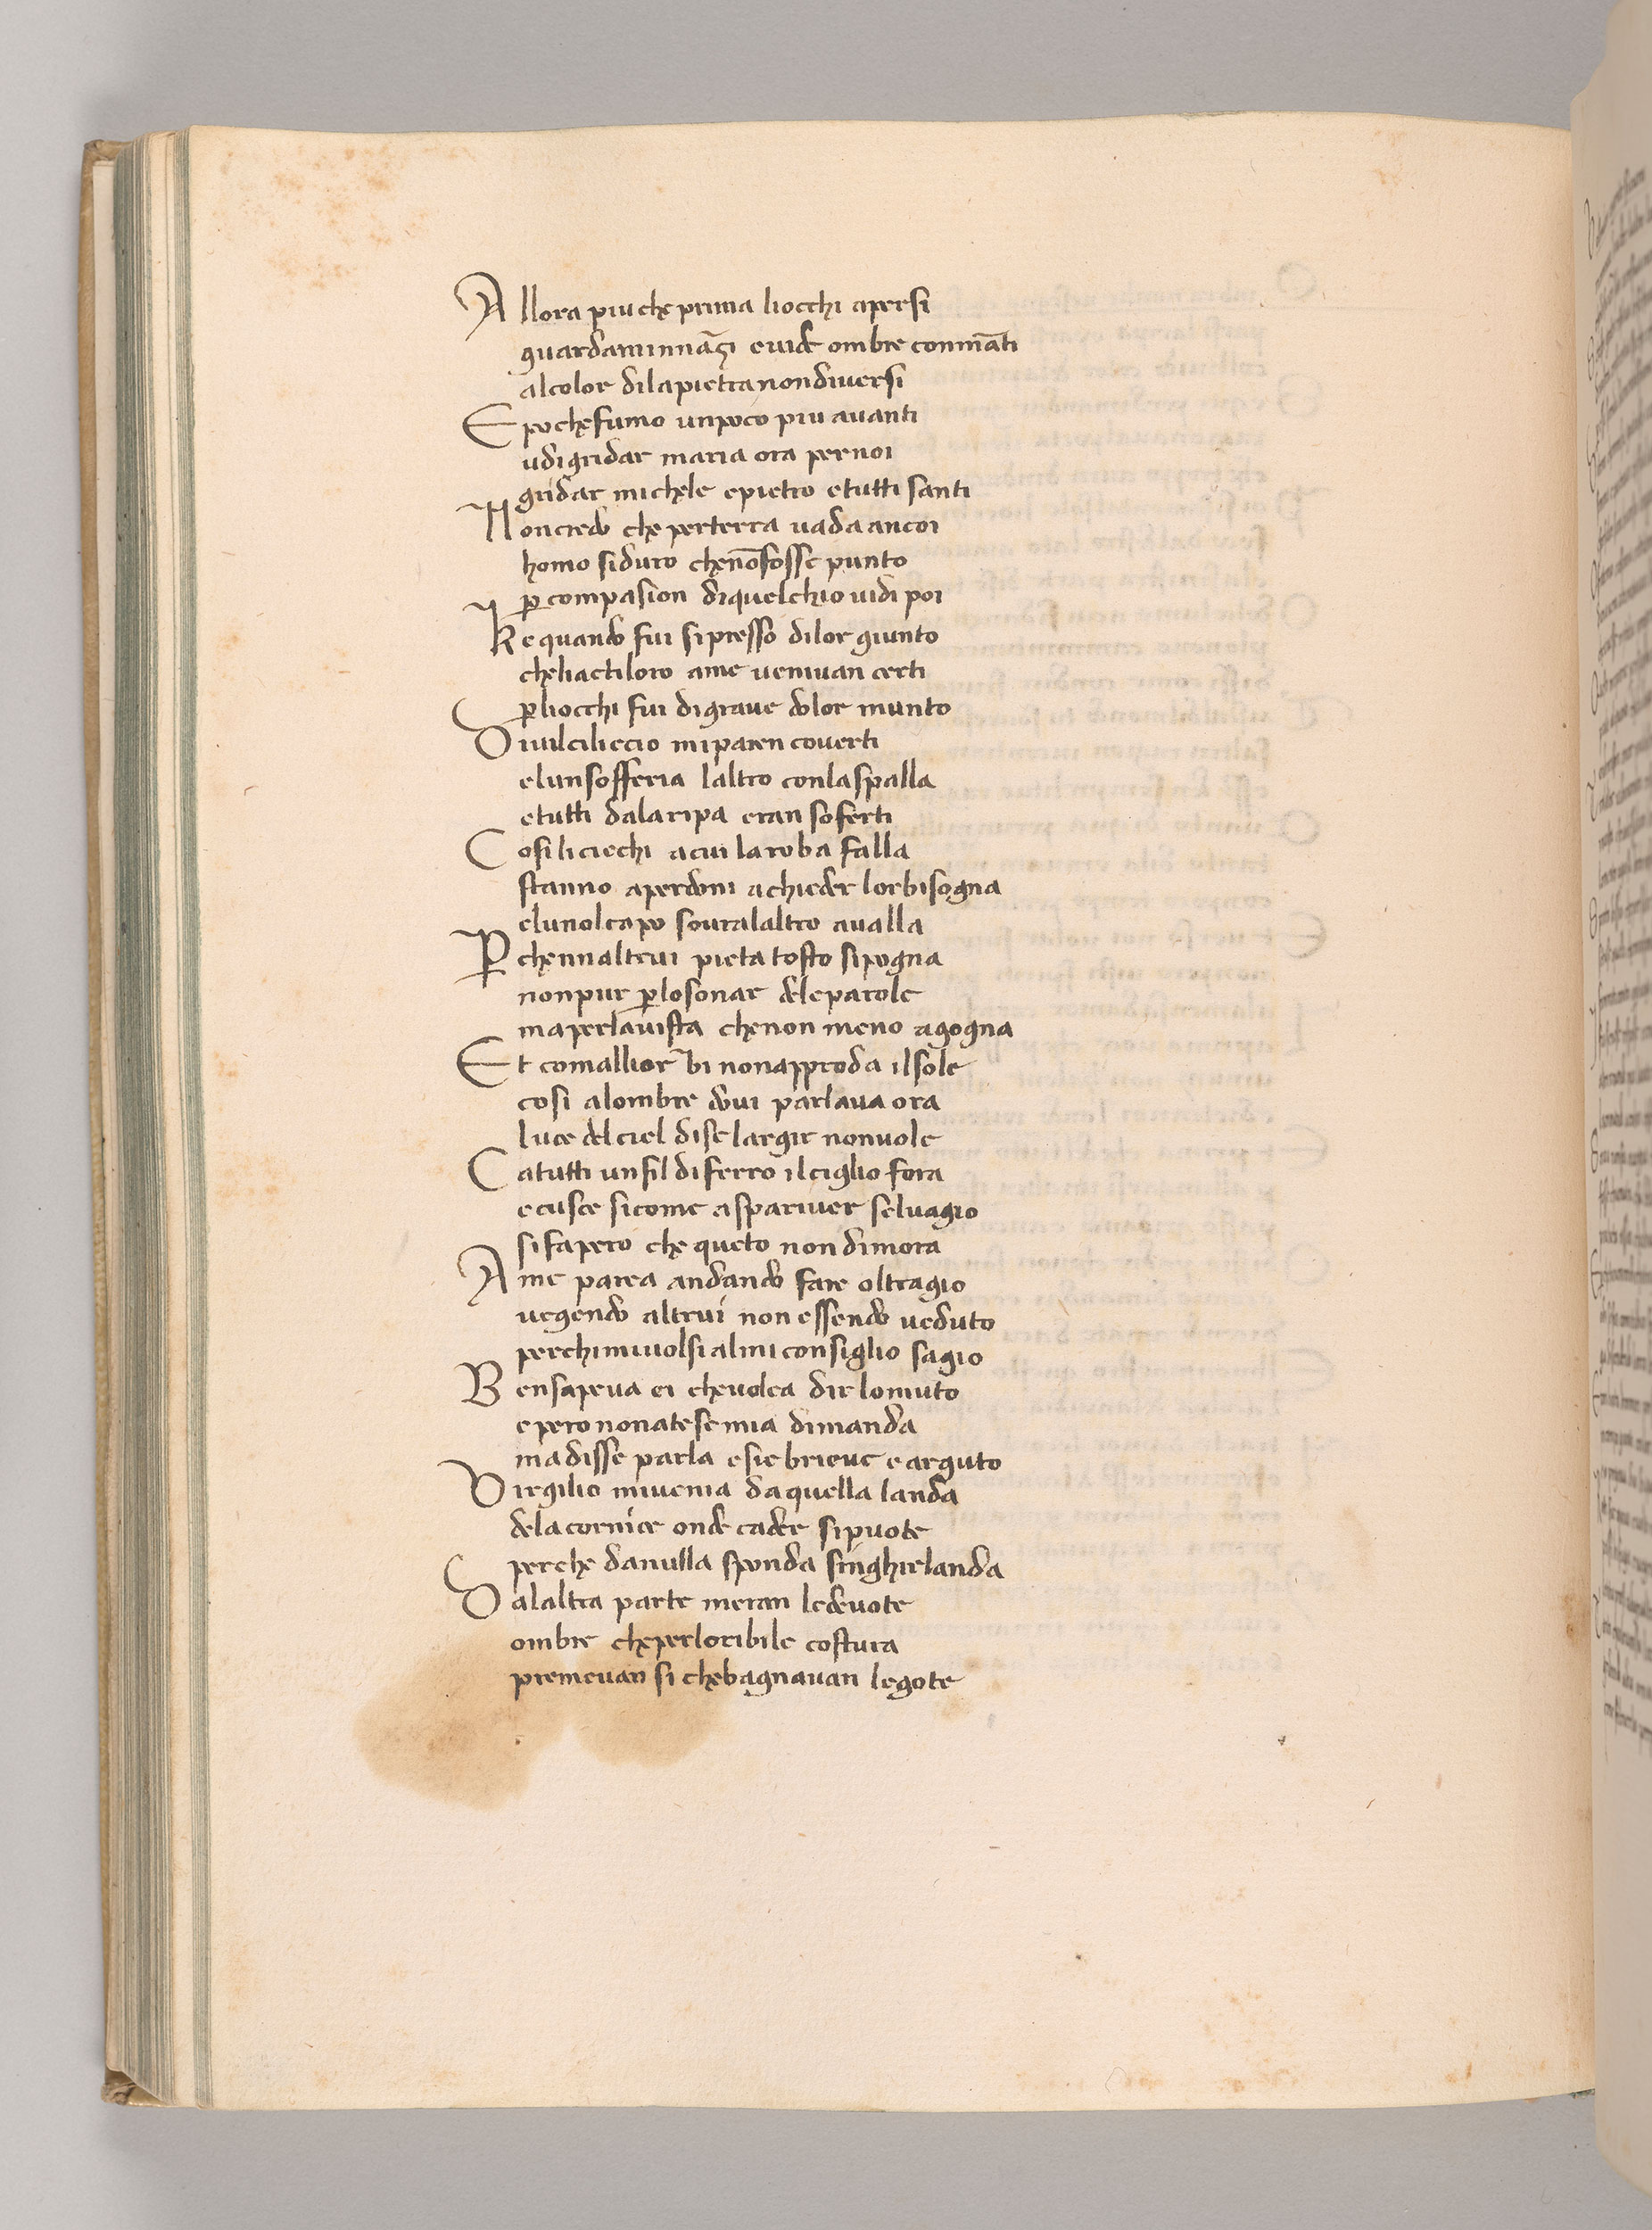 Allora piu che prima liocchi apersi
guardaminnāçi evide ombre conmāti
alcolor dilapietra nondiversi
E poche fumo unpoco piu avanti
udi gridar maria ora pernoi
gridar michele epietro etutti santi
Noncredo che perterra vada ancoi
homo siduro che nōfosse punto
ꝑ compasion diquelchio vidi poi
Ke quando fui sipresso dilor giunto
cheliacti loro ame venivan certi
ꝑ liocchi fui digrave dolor munto
Divilciliccio miparen coverti
elunsofferia laltro conlaspalla
etutti dalaripa eran soferti
Cosi liciechi acui laroba falla
stanno aperdoni achieder lorbisogna
elunolcapo souralaltro avalla
Ꝑche nnaltrui pieta tosto sipogna
nonpur ꝑlosonar deleparole
maperlavista chenon meno agogna
Et comalliorbi nonapproda ilsole
cosi alombre dovi parlava ora
luce delciel dise largir nonvole
Catutti unfil diferro ilciglio fora
ecusce sicome aspariver selvagio
sifapero che queto non dimora
Ame parea andando fare oltragio
vegendo altrui non essendo veduto
perchimivolsi almi consiglio sagio
Bensapeva ei chevolea dir lomuto
epero nonatese mia dimanda
madisse parla esie brieve earguto
Virgilio mivenia daquella landa
delacornice onde cader sipuote
perche danulla sponda singhirlanda
Dalaltra parte meran ledevote
ombre cheperloribile costura
premevan si chebagnavan legote